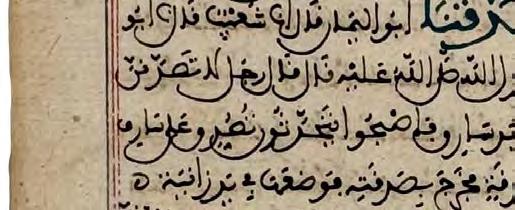 ابو اليمان قال انا شعيب قال انا ابو
الله صلى الله عليه قال قال رجل لاتصدقن
يد سارق فاصبحوا يتحدثون تصدق على سارق
فخرج بصدقته فوضعها في يد زانية